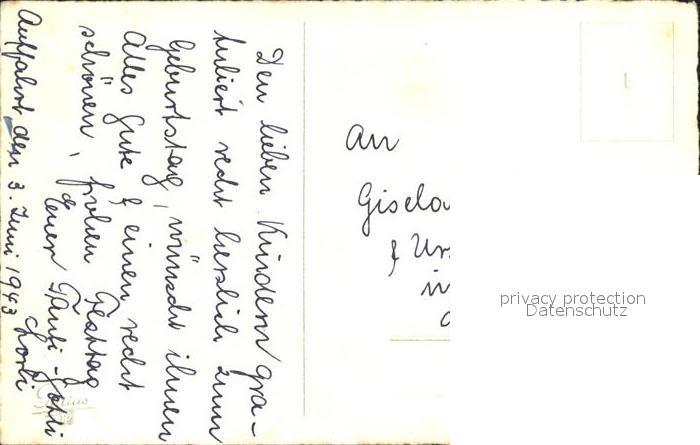 Den lieben Kindern gra-
tuliert recht herzlich zum
Geburtstag, wünscht ihnen
Alles Gute & einen recht
schönen, frohen Festtag
Euer Tanti-Gotti
Auffahrt den 3. Juni 1943
An
Gisela
& Urs
in
privacy protection
Datenschutz